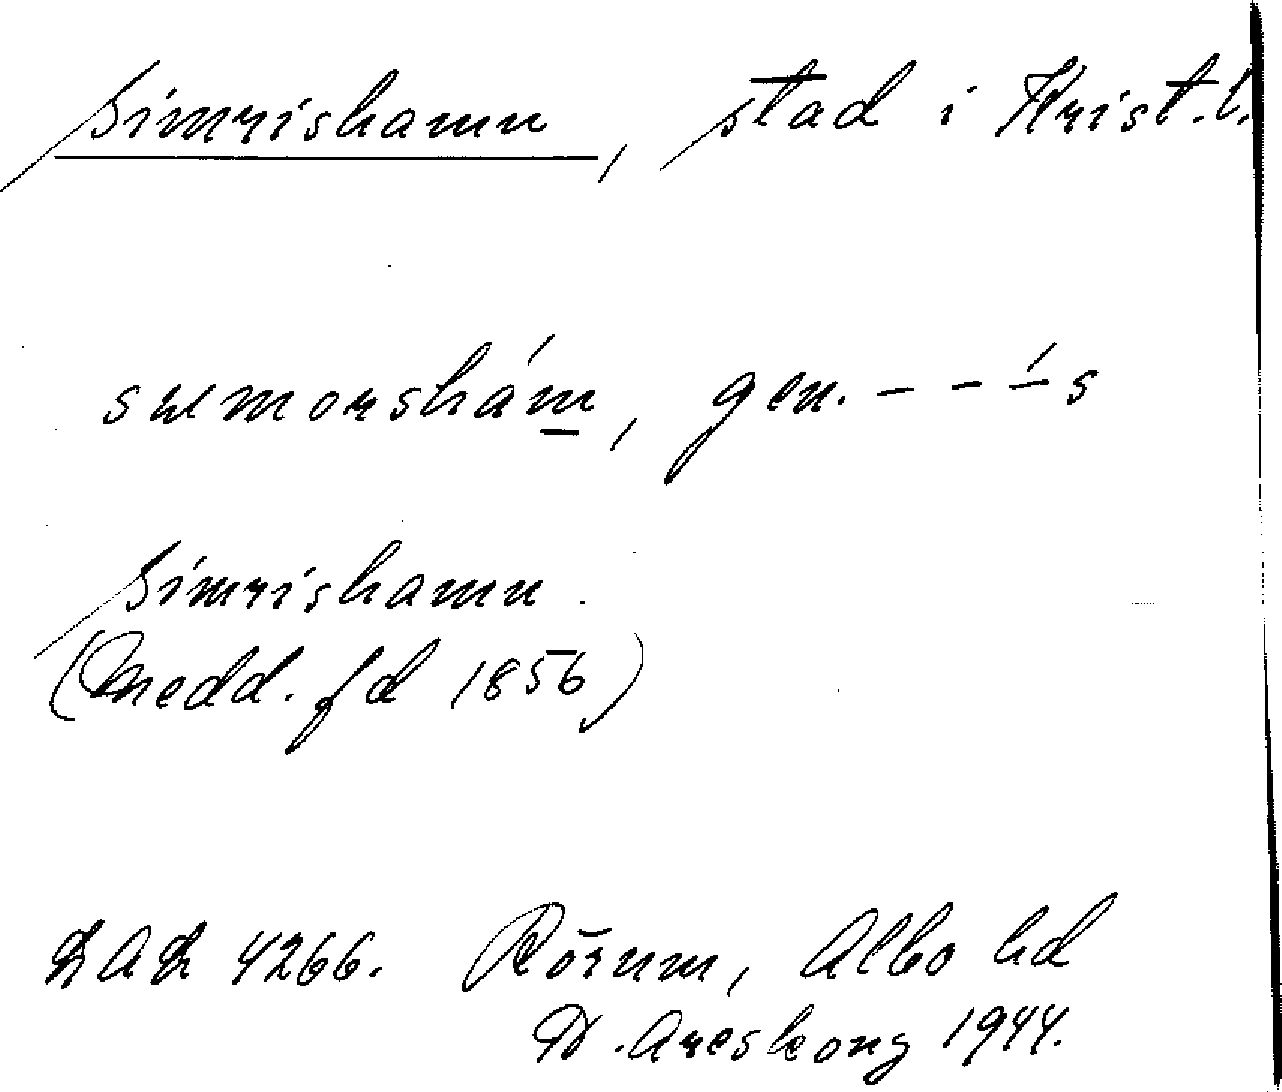 Simrishamn, stad i Krist.l.
summorshám, gen. – – –́ s
Simrishamn
(Medd. fd 1856)
LAL 4266. Rörum, Albo hd
D. Areskoug 1944.